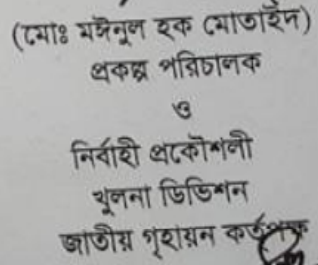 (মোঃ মঈনুল হক মোতাইদ)
প্রকল্প পরিচালক
ও
নির্বাহী প্রকৌশলী
খুলনা ডিভিশন
জাতীয় গৃহায়ন কর্তৃপক্ষ